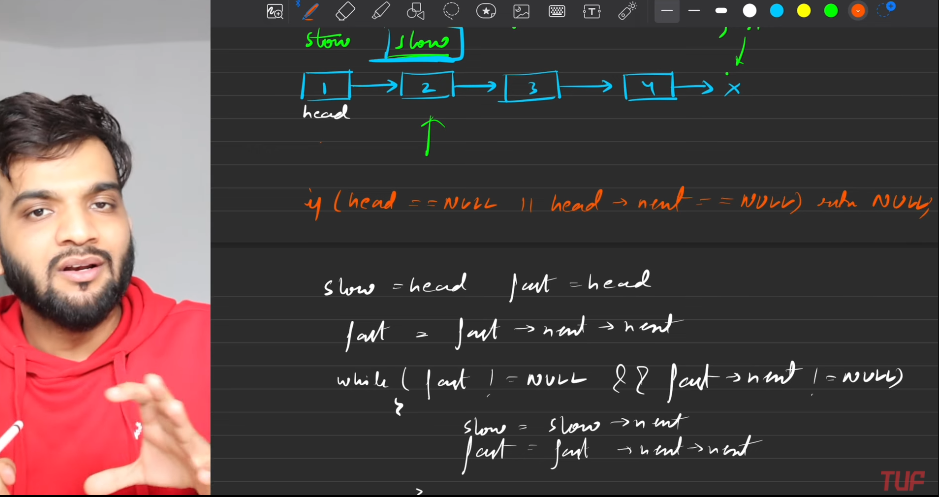 slow slow
1 2 3 4 x
head
if (head == NULL || head → next == NULL) return NULL;
slow = head fast = head
fast = fast → next → next
while ( fast != NULL && fast → next != NULL)
{
slow = slow → next
fast = fast → next → next
}
TUF